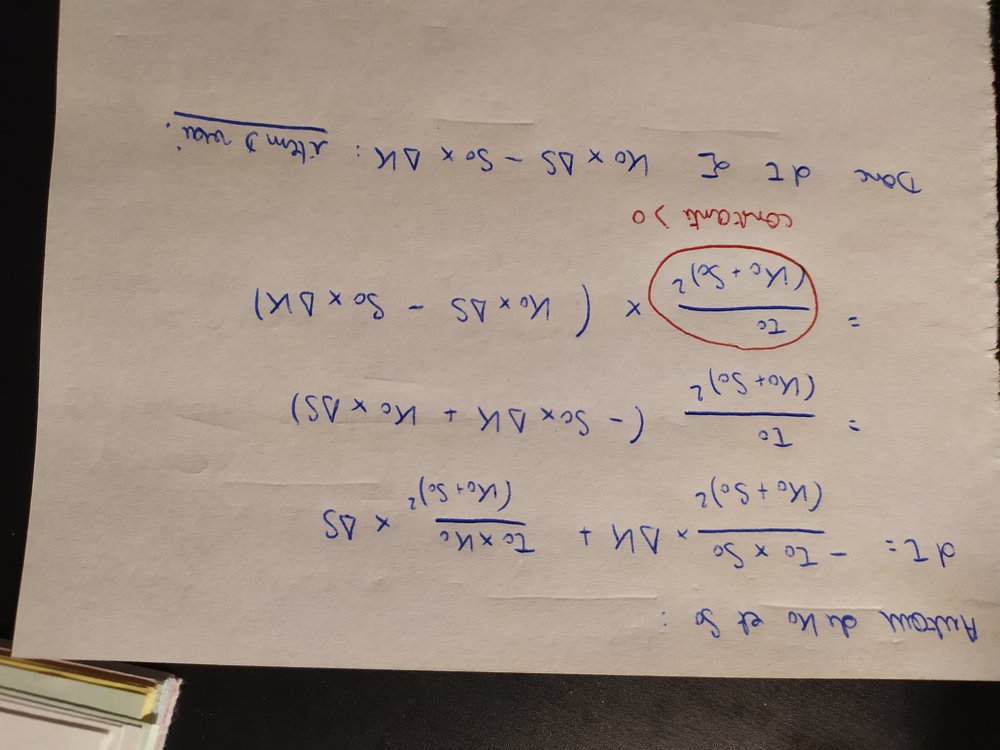 Autour de K₀ et S₀ :
dI = - I₀ × S₀ / (K₀ + S₀)² × ΔK + I₀ × K₀ / (K₀ + S₀)² × ΔS
= I₀ / (K₀ + S₀)² (- S₀ × ΔK + K₀ × ΔS)
= I₀ / (K₀ + S₀)² × (K₀ × ΔS - S₀ × ΔK)
constante > 0
Donc dI α K₀ × ΔS - S₀ × ΔK : item D vrai.